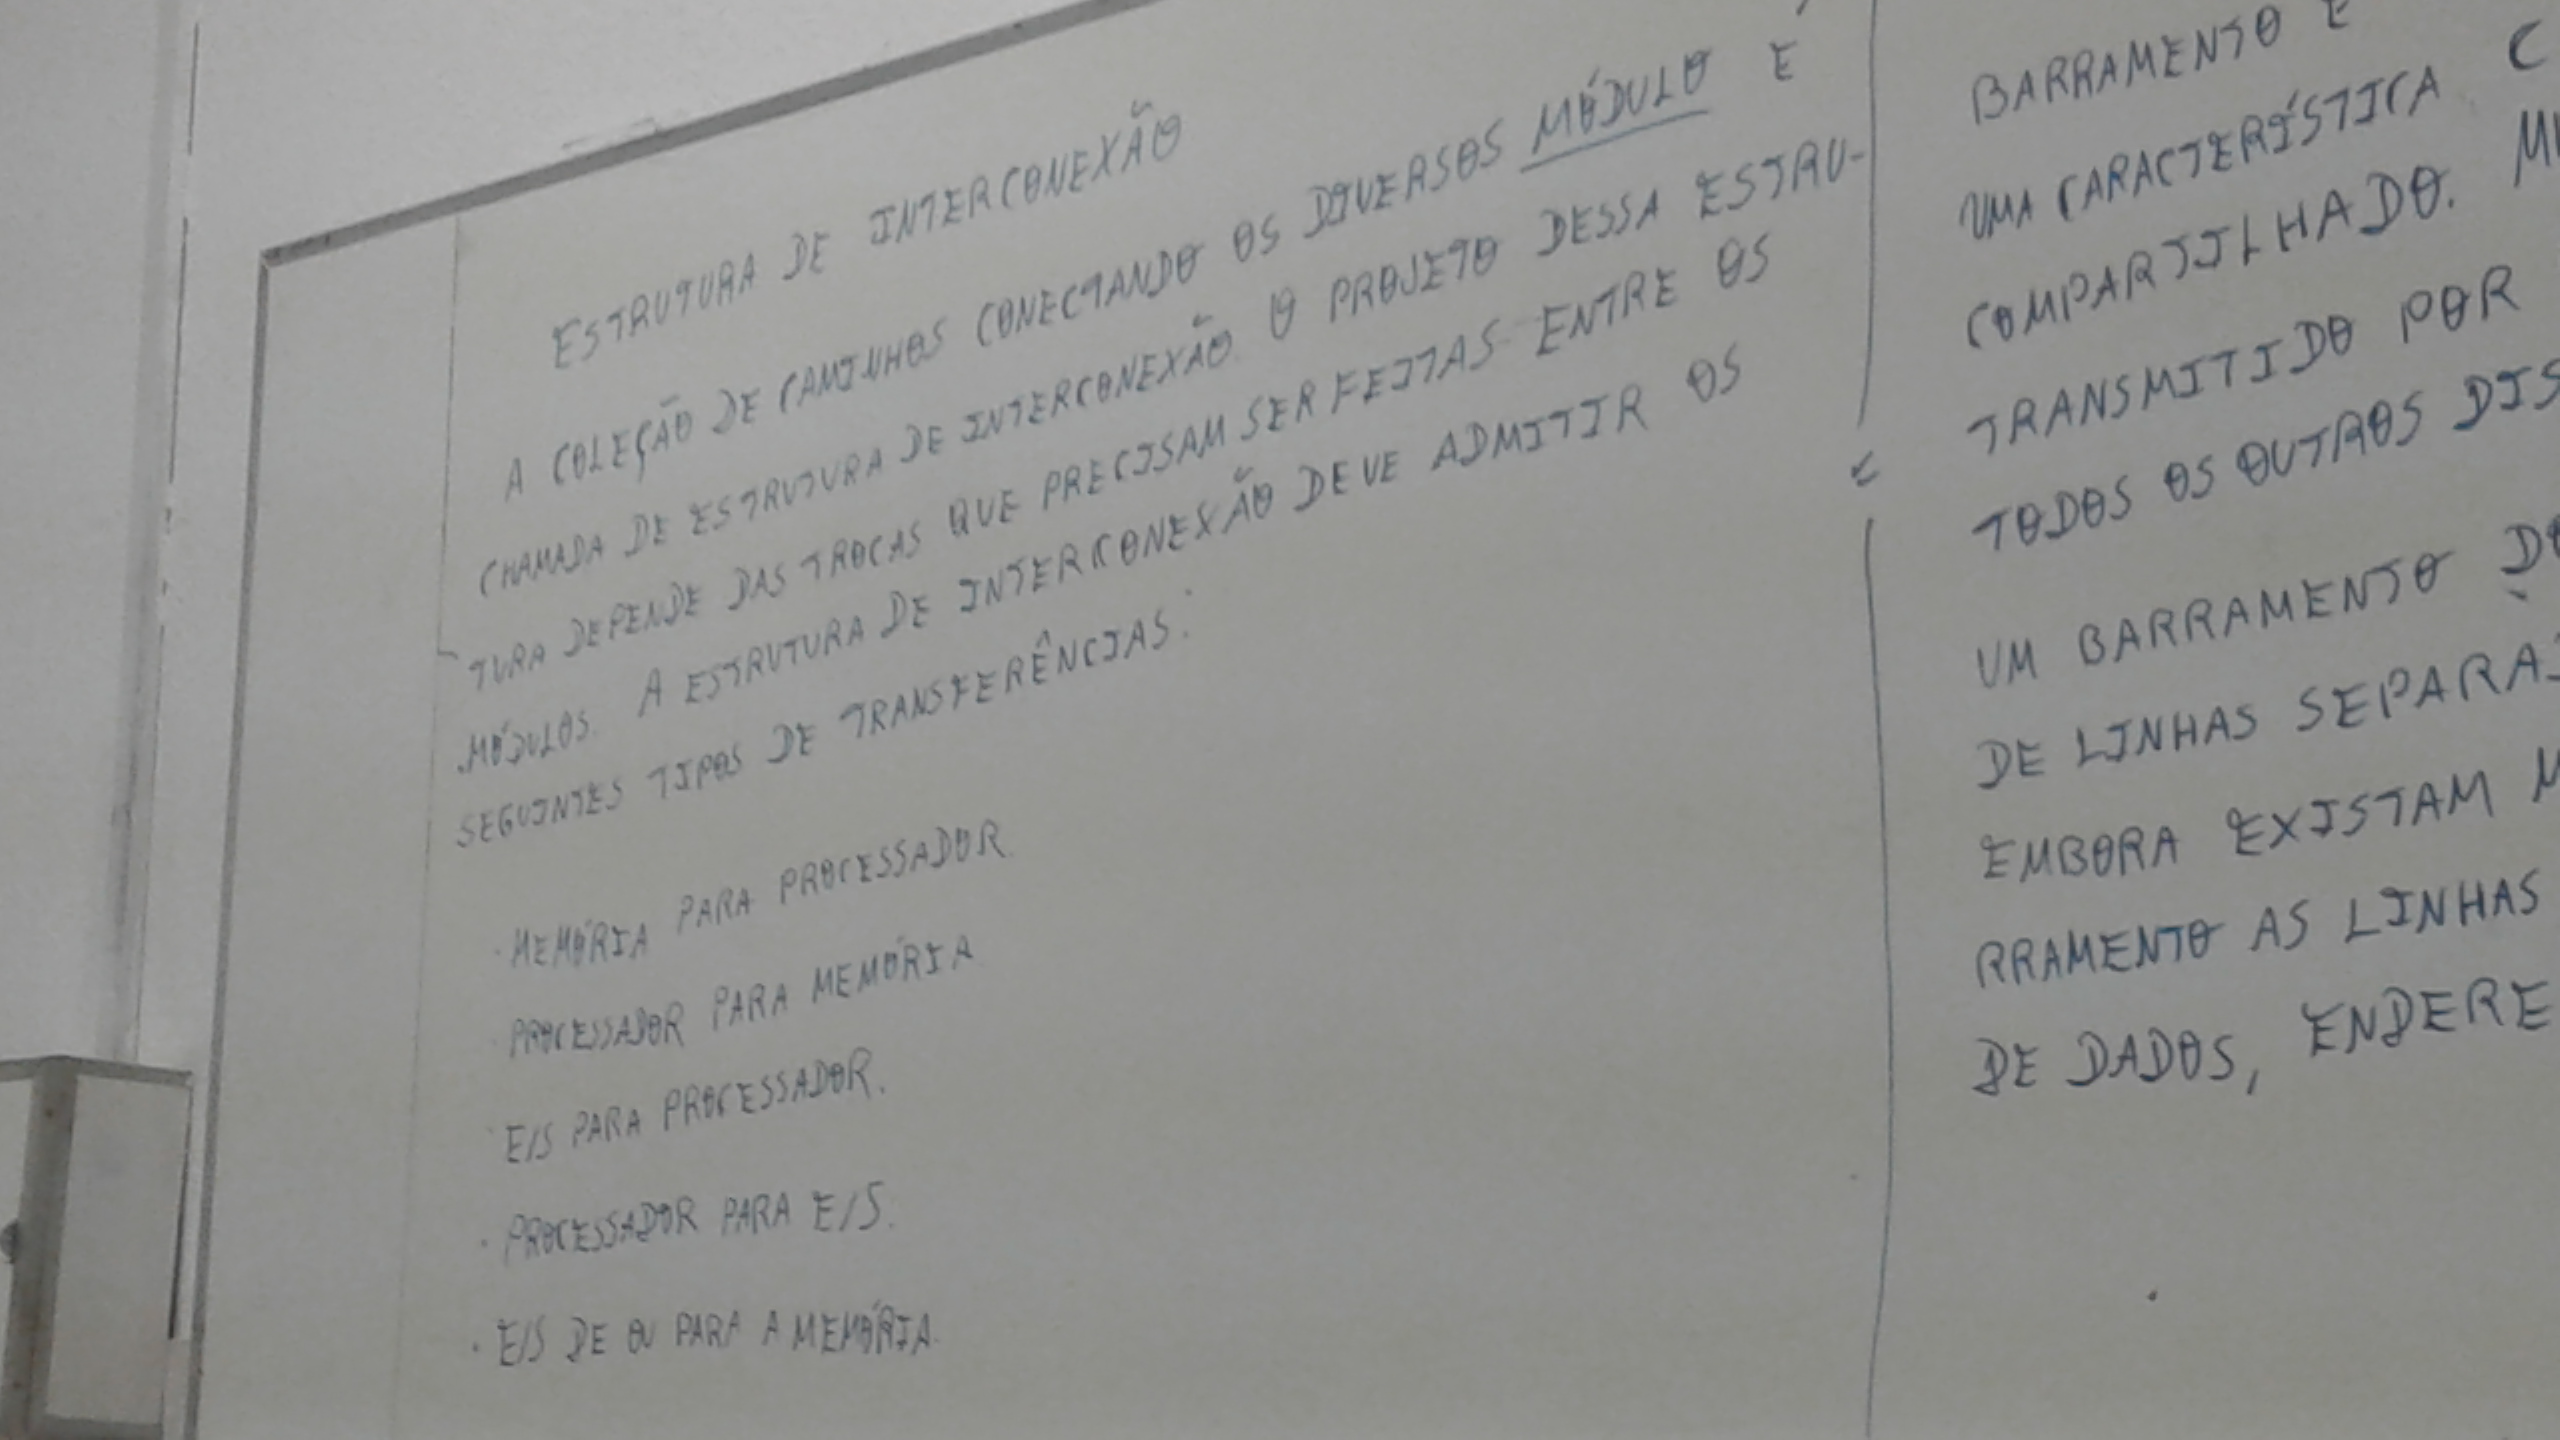 ESTRUTURA DE INTERCONEXÃO
A COLEÇÃO DE CAMINHOS CONECTANDO OS DIVERSOS MÓDULO É
CHAMADA DE ESTRUTURA DE INTERCONEXÃO. O PROJETO DESSA ESTRU-
TURA DEPENDE DAS TROCAS QUE PRECISAM SER FEITAS ENTRE OS
MÓDULOS. A ESTRUTURA DE INTERCONEXÃO DEVE ADMITIR OS
SEGUINTES TIPOS DE TRANSFERÊNCIAS:
· MEMÓRIA PARA PROCESSADOR.
· PROCESSADOR PARA MEMÓRIA
· E/S PARA PROCESSADOR.
· PROCESSADOR PARA E/S.
· E/S DE OU PARA A MEMÓRIA.
BARRAMENTO E
UMA CARACTERÍSTICA C
COMPARTILHADO.
TRANSMITIDO POR
TODOS OS OUTROS DIS
UM BARRAMENTO DO
DE LINHAS SEPARA
EMBORA EXISTAM
RRAMENTO AS LINHAS
DE DADOS, ENDERE